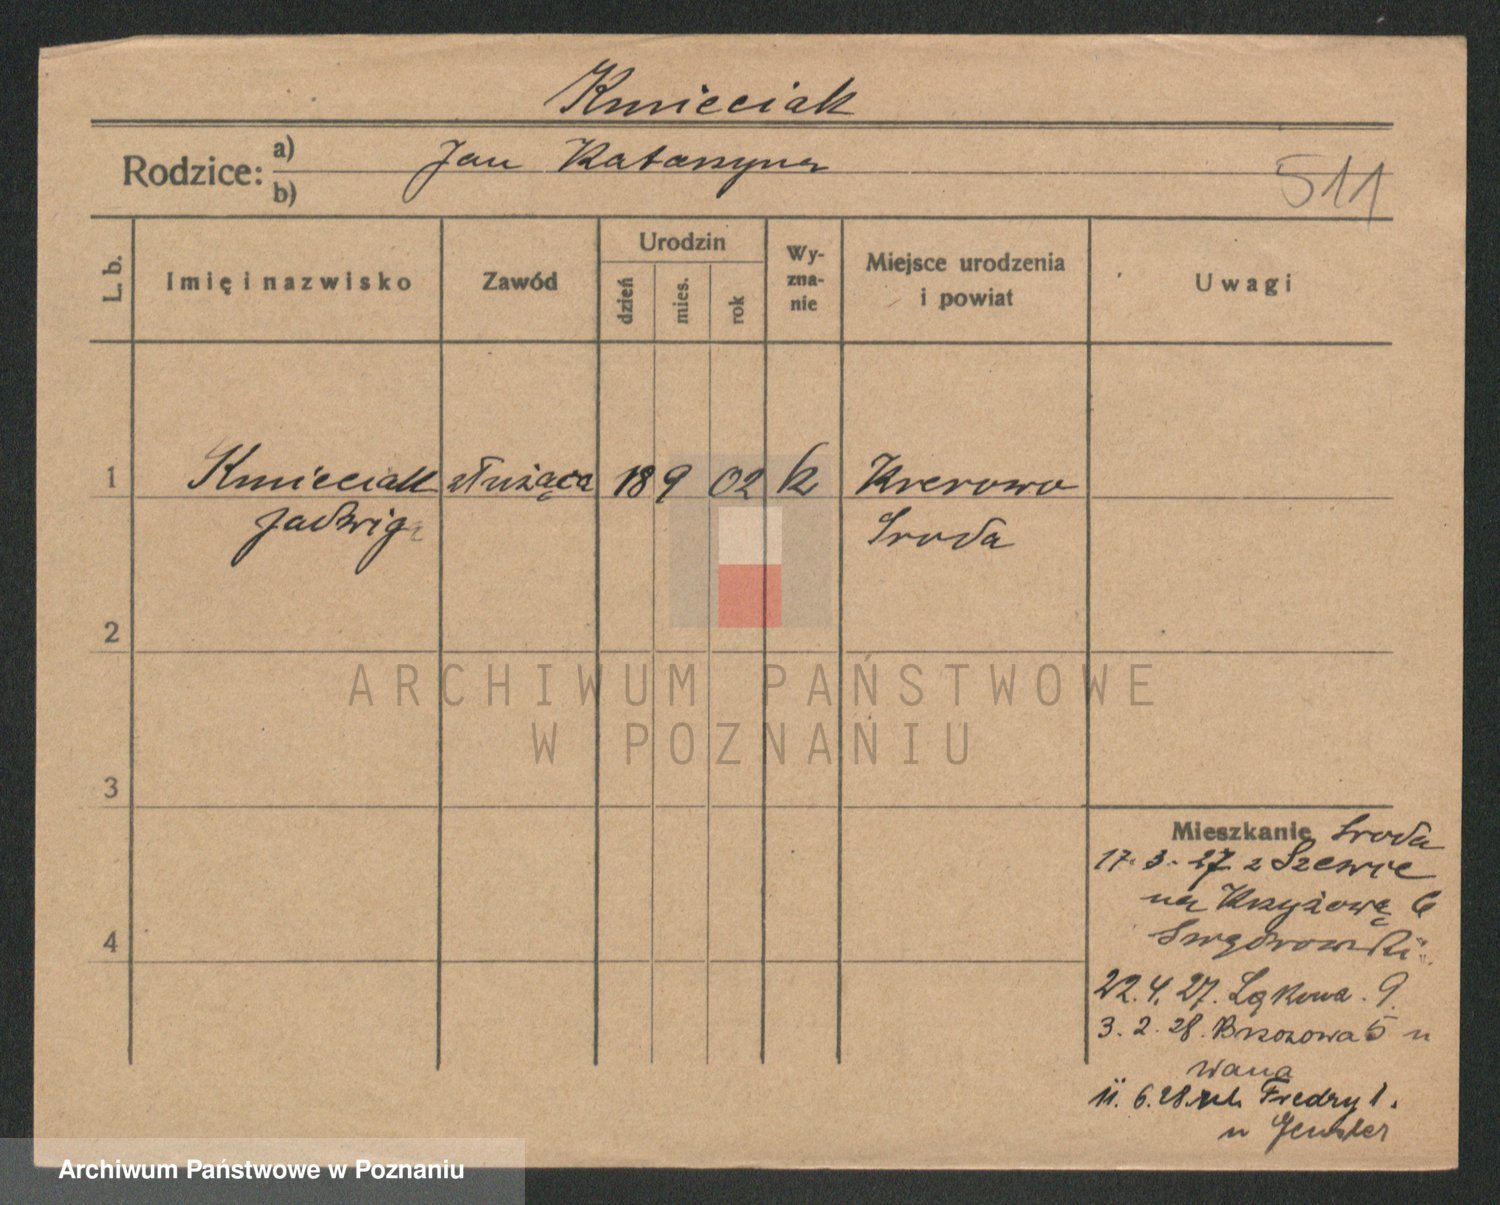 Kmieciak
Rodzice: a) Jan Katarzyna
b)
511
L. b.
Imię i nazwisko
Zawód
Urodzin
dzień
mies.
rok
Wy-
zna-
nie
Miejsce urodzenia
i powiat
Uwagi
1 Kmieciak służąca 18 9 02 k Krerowo
Jadwiga Sroda
2
3
4
Mieszkanie Sroda
17. 3. 27 z Szewce
na Krzyżową 6
22. 4. 27. Łąkowa. 9.
3. 2. 28. Brzozowa 5 u
wana
11. 6. 28. ul. Fredry 1.
u
ARCHIWUM PAŃSTWOWE
W POZNANIU
Archiwum Państwowe w Poznaniu